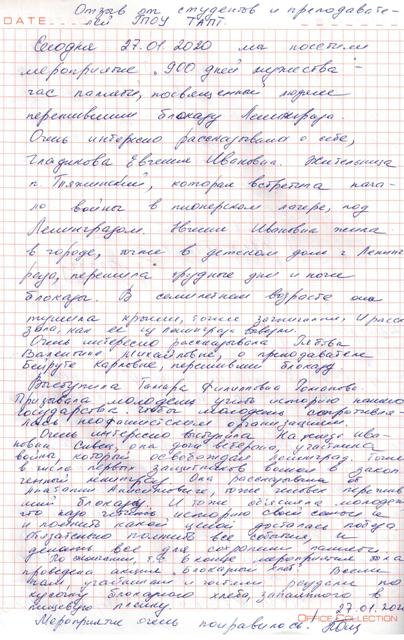 Отзыв от студентов и преподавате-
DATE лей ГПОУ ТАПТ.
Сегодня 27.01.2020 мы посетили
мероприятие „900 дней мужества" –
час памяти, посвященный людям
пережившим блокаду Ленинграда
Очень интересно рассказывала о себе,
Гладикова Евгения Ивановна. Жительница
п. Тяжинский, которая встретила нача-
ло войны в пионерском лагере, под
Ленинградом. Евгения Ивановна жила
в городе, позже в детском доме г. Ленинг
рада, пережила трудные дни и ночи
блокады. В семилетнем возрасте она
тушила крыши, зажигалки. И расска
зала, как ее из Ленинграда
Очень интересно рассказывала
Валентина Михайловна, о преподавателе
Карловне, пережившей блокаду
Выступила Тамара Филипповна Романова
Призывала молодежь учить историю нашего
государства, чтобы молодежь сопротивля-
лась неофашистским организациям.
Очень интересно выступила Ива-
новна Она дочь ветерана, участника
войны, который освобождал Ленинград.
в числе первых защитников воевал
Она рассказывала об
тоже человек пережив
ший блокаду. И тоже объяснила молодежи
что надо учить историю своей
и помнить какой ценой досталась победа.
Обязательно помнить все события, и
делать все для сохранения памяти.
По окончании, т.е. в конце мероприятия была
проведена акция „Блокадный хлеб". Всем
участникам и гостям раздали по
кусочку блокадного хлеба, запаянного в
пищевую пленку.
27.01.2020
Мероприятие очень понравилось!
OFFICE COLLECTION